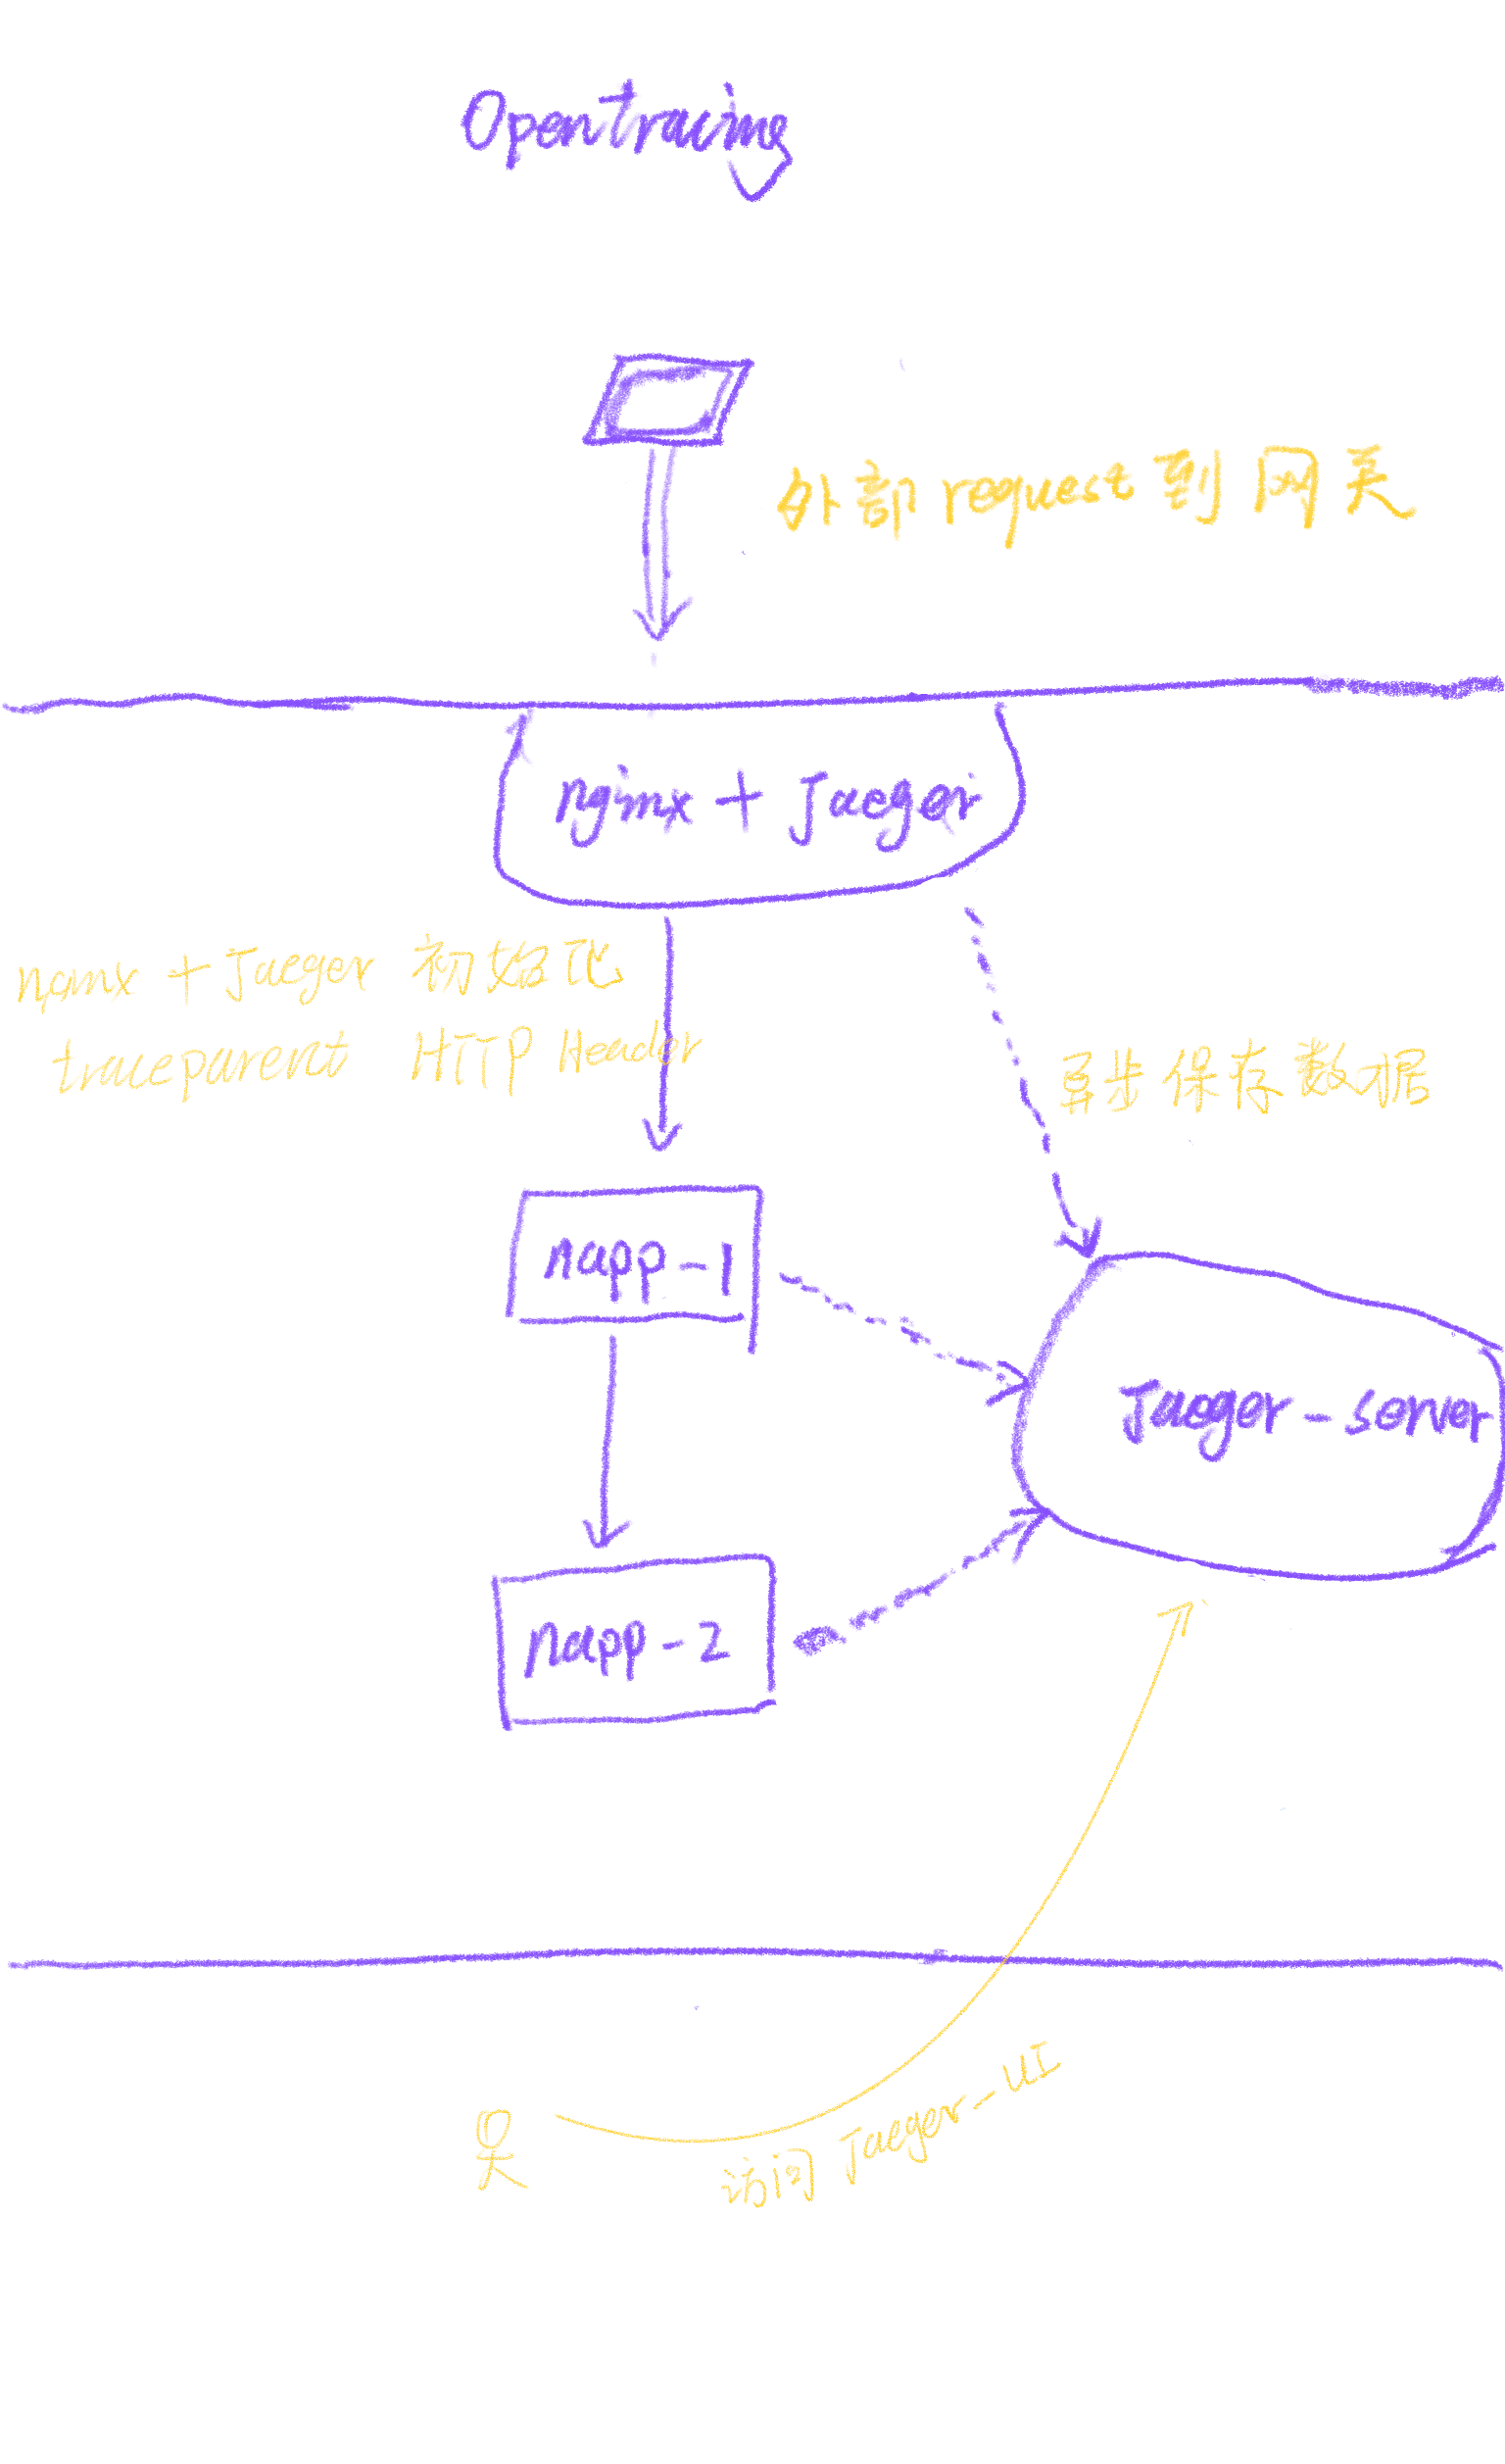 Opentracing
外部request到网关
nginx + Jaeger
nginx + Jaeger 初始化
traceparent HTTP Header
异步保存数据
napp-1
Jaeger-server
napp-2
访问 Jaeger-UI